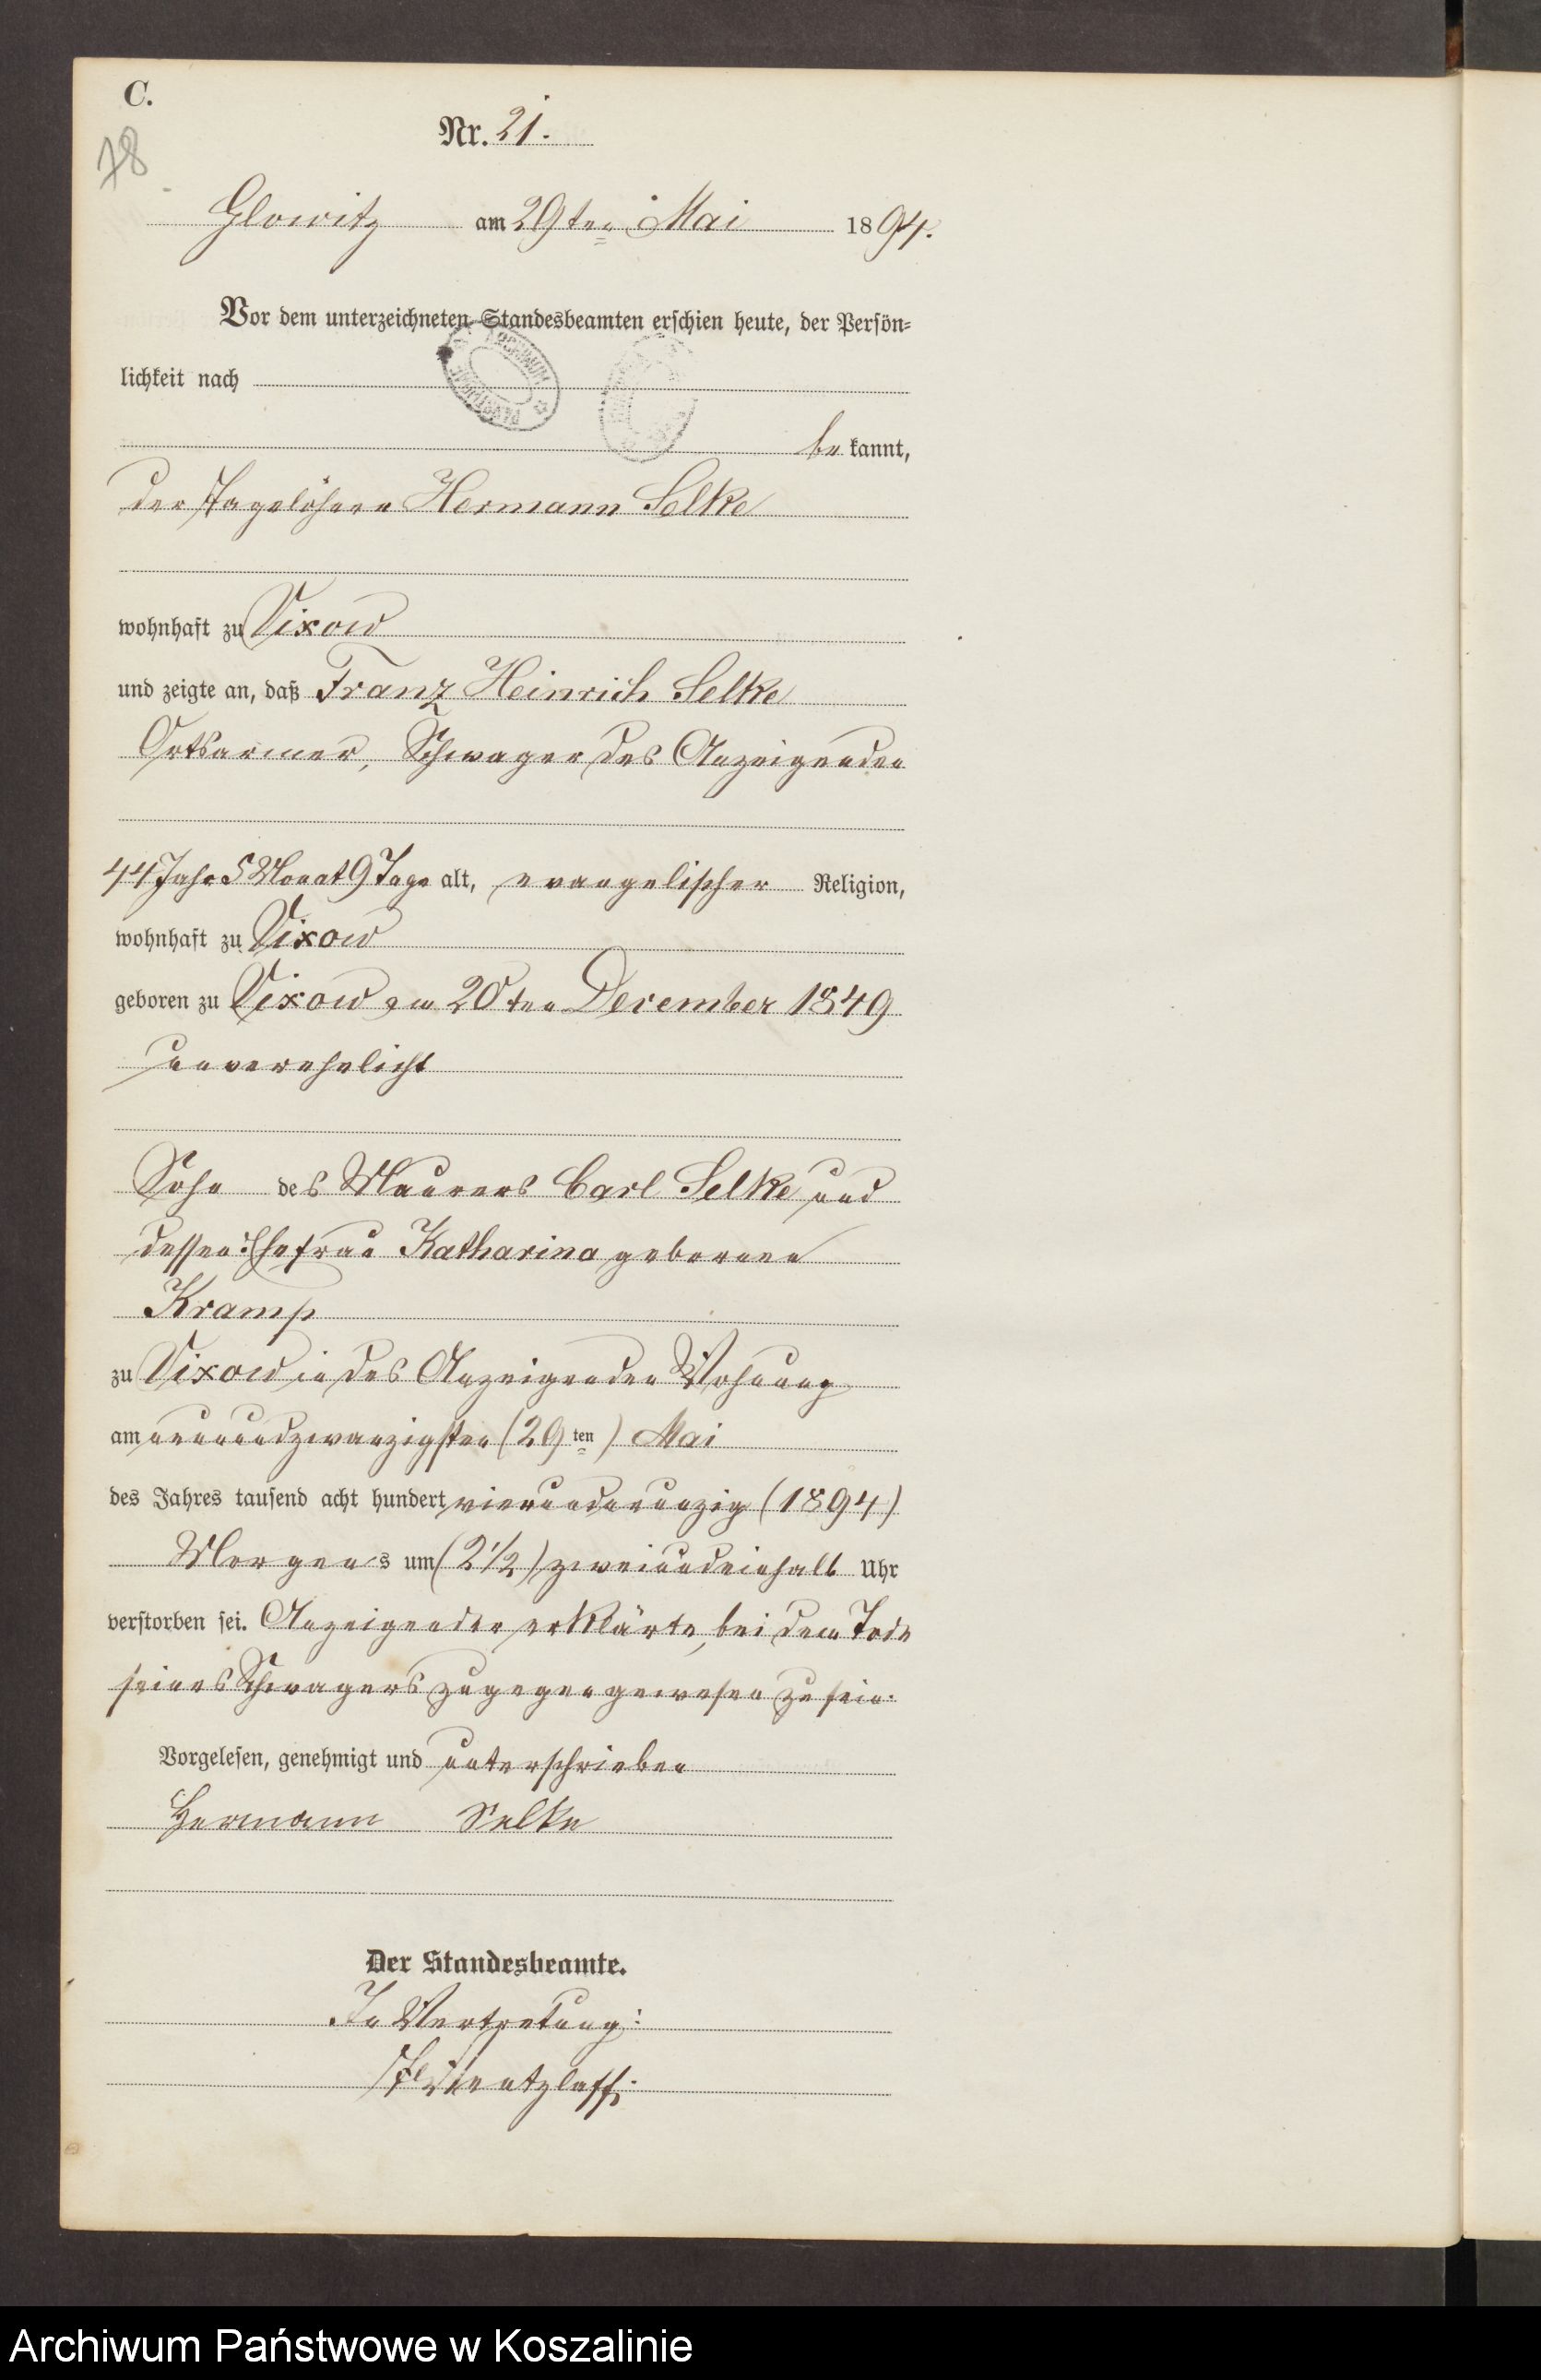 C.
78
Nr. 21.
Glowitz am 29ten Mai 1894.
Vor dem unterzeichneten Standesbeamten erschien heute, der Persön-
lichkeit nach
be kannt,
der Tagelöhner Hermann Selke
wohnhaft zu Vixow
und zeigte an, daß Franz Heinrich Selke
Ortsarmer, Schwager des Anzeigenden
44 Jahr 5 Monat 9 Tage alt, evangelischer Religion,
wohnhaft zu Vixow
geboren zu Vixow am 20ten December 1849
unverehelicht
Sohn des Maurers Carl Selke und
dessen Ehefrau Katharina geborenen
Kramp
zu Vixow in des Anzeigenden Wohnung
am neunundzwanzigsten (29ten) Mai
des Jahres tausend acht hundert vierundneunzig (1894)
Morgens um (2 1/2) zweiundeinhalb Uhr
verstorben sei. Anzeigender erklärte, bei dem Tode
seines Schwagers zugegen gewesen zu sein.
Vorgelesen, genehmigt und unterschrieben
Hermann Selke
Der Standesbeamte.
In Vertretung:
Archiwum Państwowe w Koszalinie